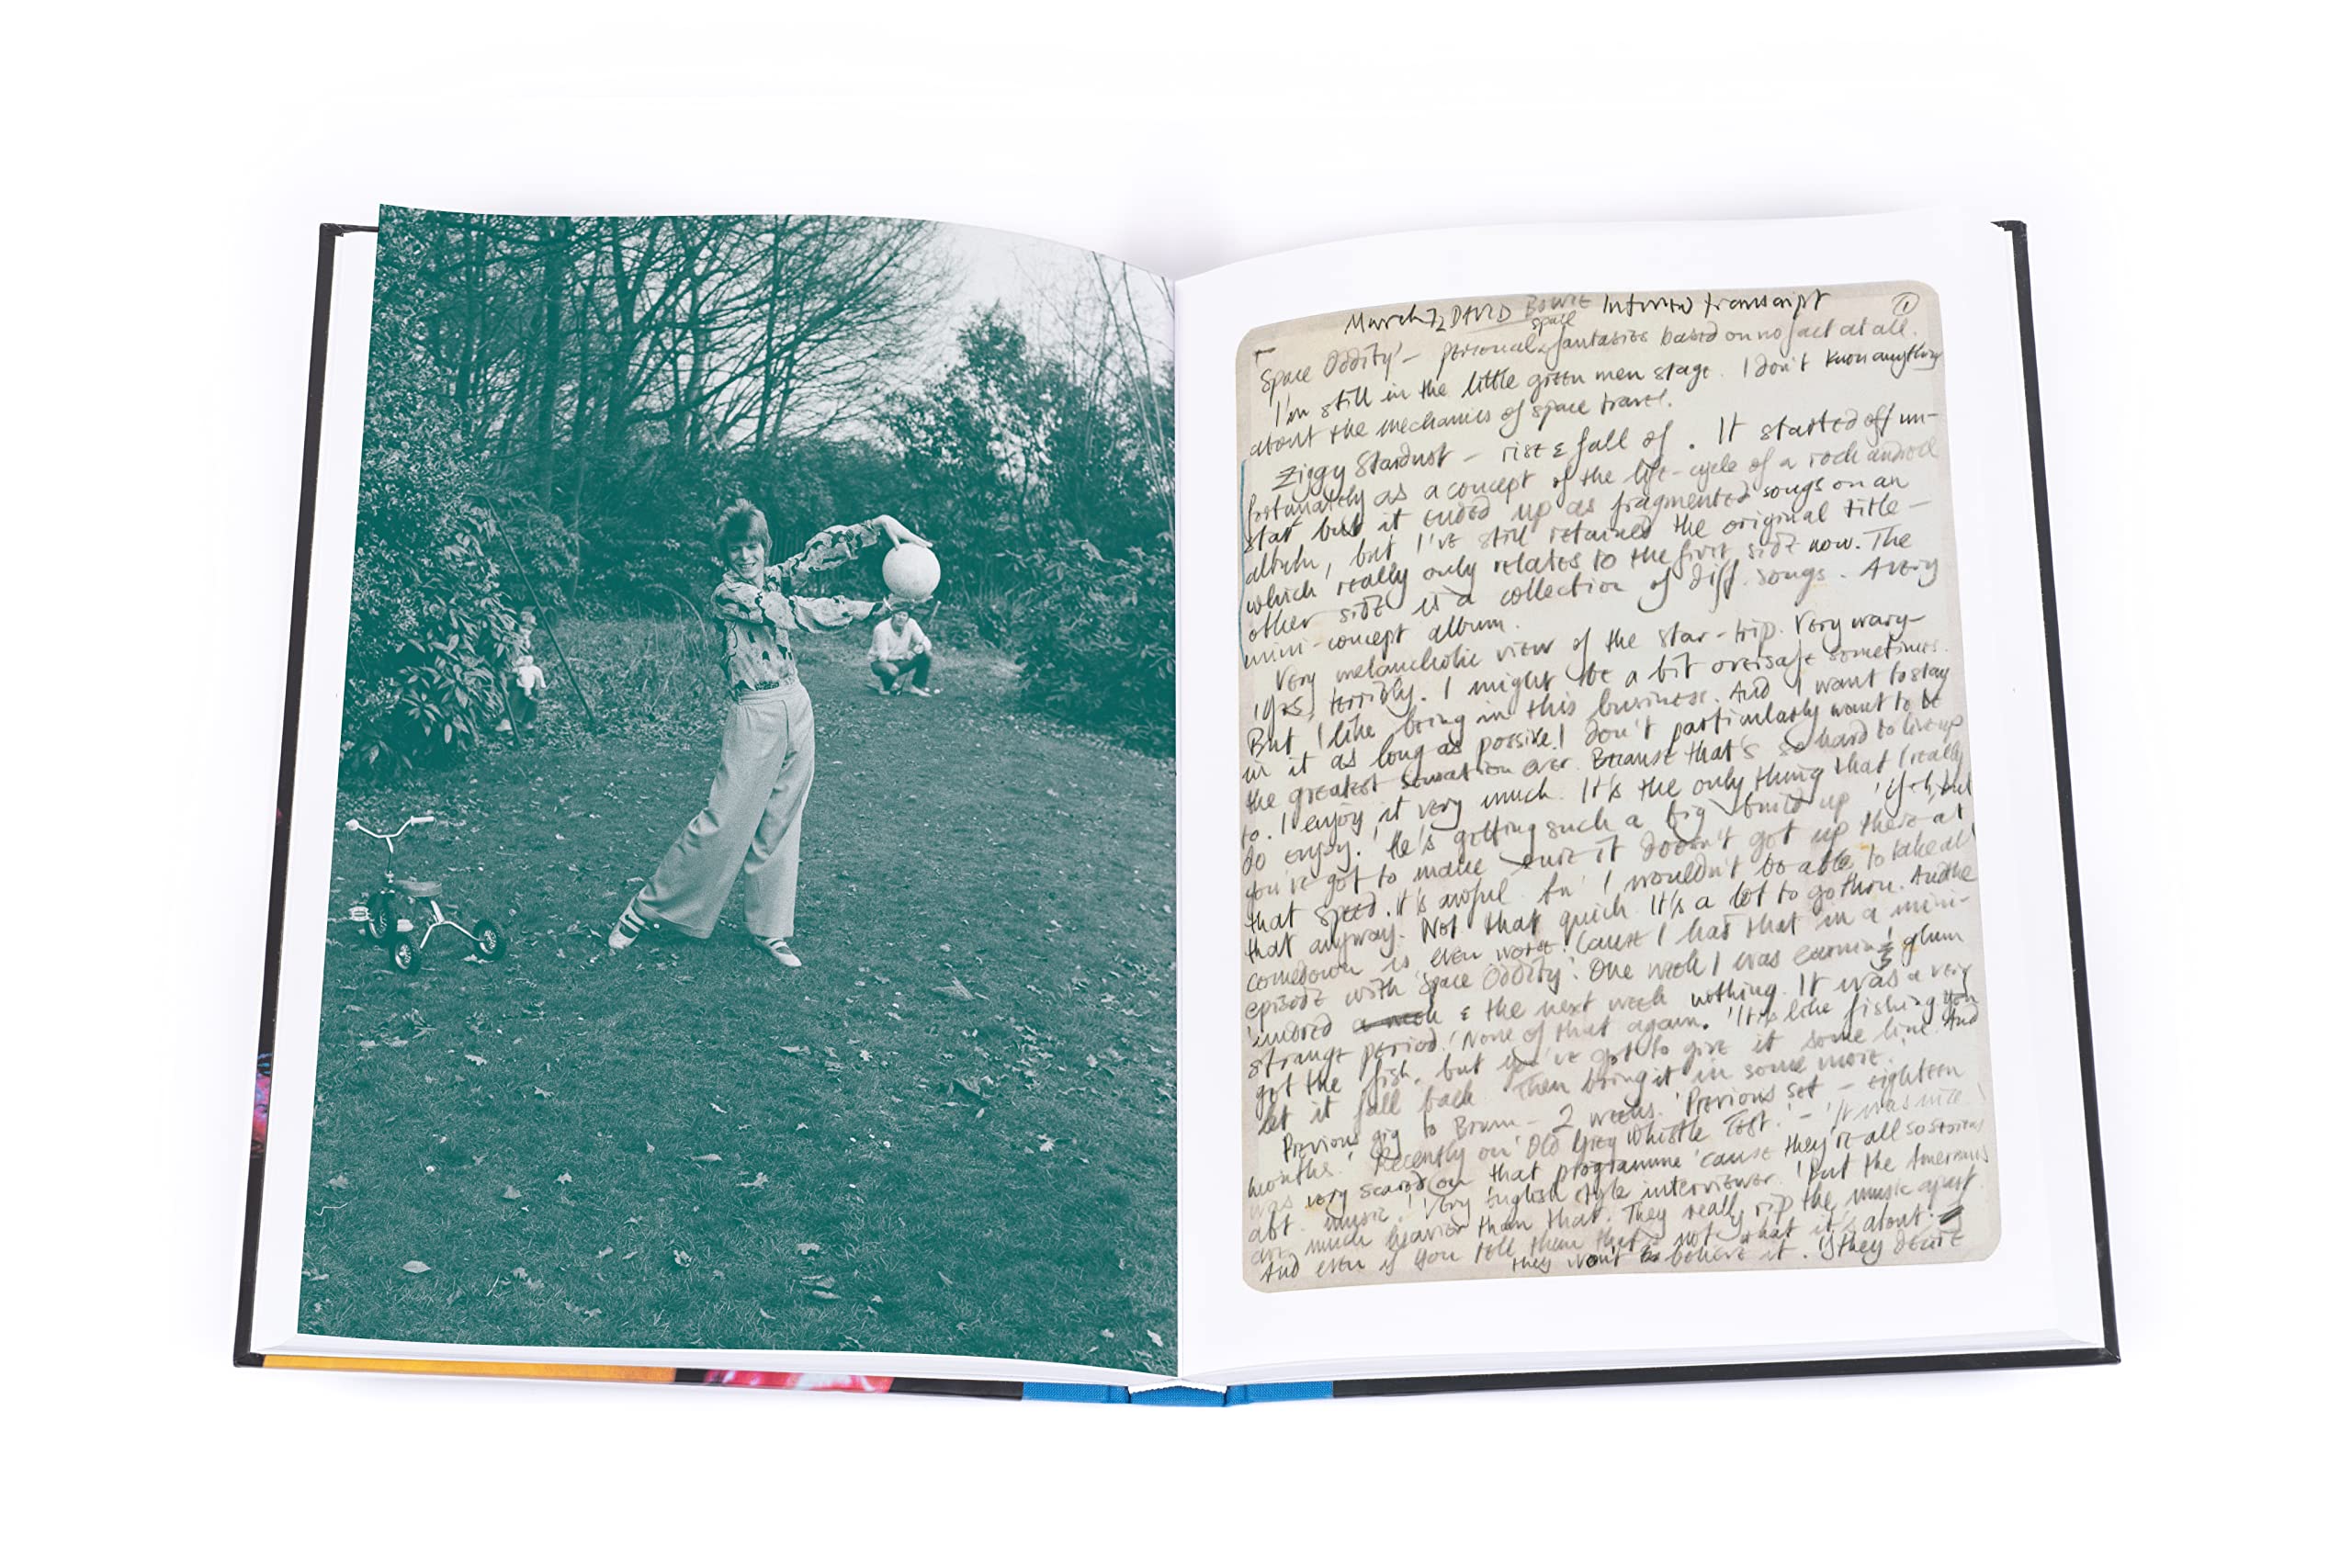 March 72 DAVID BOWIE Interview transcript ①
space
'Space Oddity' – personal & fantasies based on no fact at all.
I'm still in the little green men stage. I don't know anything
about the mechanics of space travel.
Ziggy Stardust – rise & fall of. It started off un-
fortunately as a concept of the life-cycle of a rock and roll
star but it ended up as fragmented songs on an
album, but I've still retained the original title –
which really only relates to the first side now. The
other side is a collection of diff. songs. A very
mini-concept album.
Very melancholic view of the star-trip. Very wary –
'yes, terribly. I might be a bit oversafe sometimes.
But I like being in this business. And I want to stay
in it as long as possible. I don't particularly want to be
the greatest sensation ever. Because that's so hard to live up
to. I enjoy it very much. It's the only thing that I really
do enjoy.' He's getting such a big build up 'yeh, but
you've got to make sure it doesn't get up there at
that speed. It's awful. I wouldn't be able to take all
that anyway. Not that quick. It's a lot to go thru. And the
comedown is even worse. 'Cause I had that in a mini-
episode with 'Space Oddity'. One week I was earning
& the next week nothing. It was a very
strange period.' None of that again. 'It's like fishing. You
got the fish, but you've got to give it some line. And
let it fall back. Then bring it in some more.'
Previous gig to Brum – 2 weeks. 'Previous set – eighteen
months.' Recently on 'Old Grey Whistle Test.' – 'It was nice
was very scared on that programme 'cause they're all so serious
abt. music.' Very English style interviewer. 'But the Americans
are much heavier than that. They really rip the music apart.
And even if you tell them that's not what it's about.
they won't believe it. If they decide